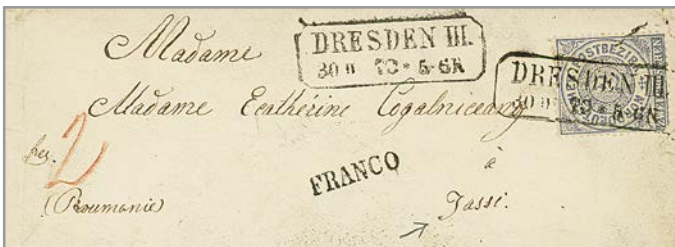 Madame
DRESDEN III.
30 11 70 * 5-6N
DRESDEN III.
Madame Ecathérine Cogalniceany
2
FRANCO
à
(Roumanie)
Jassi.